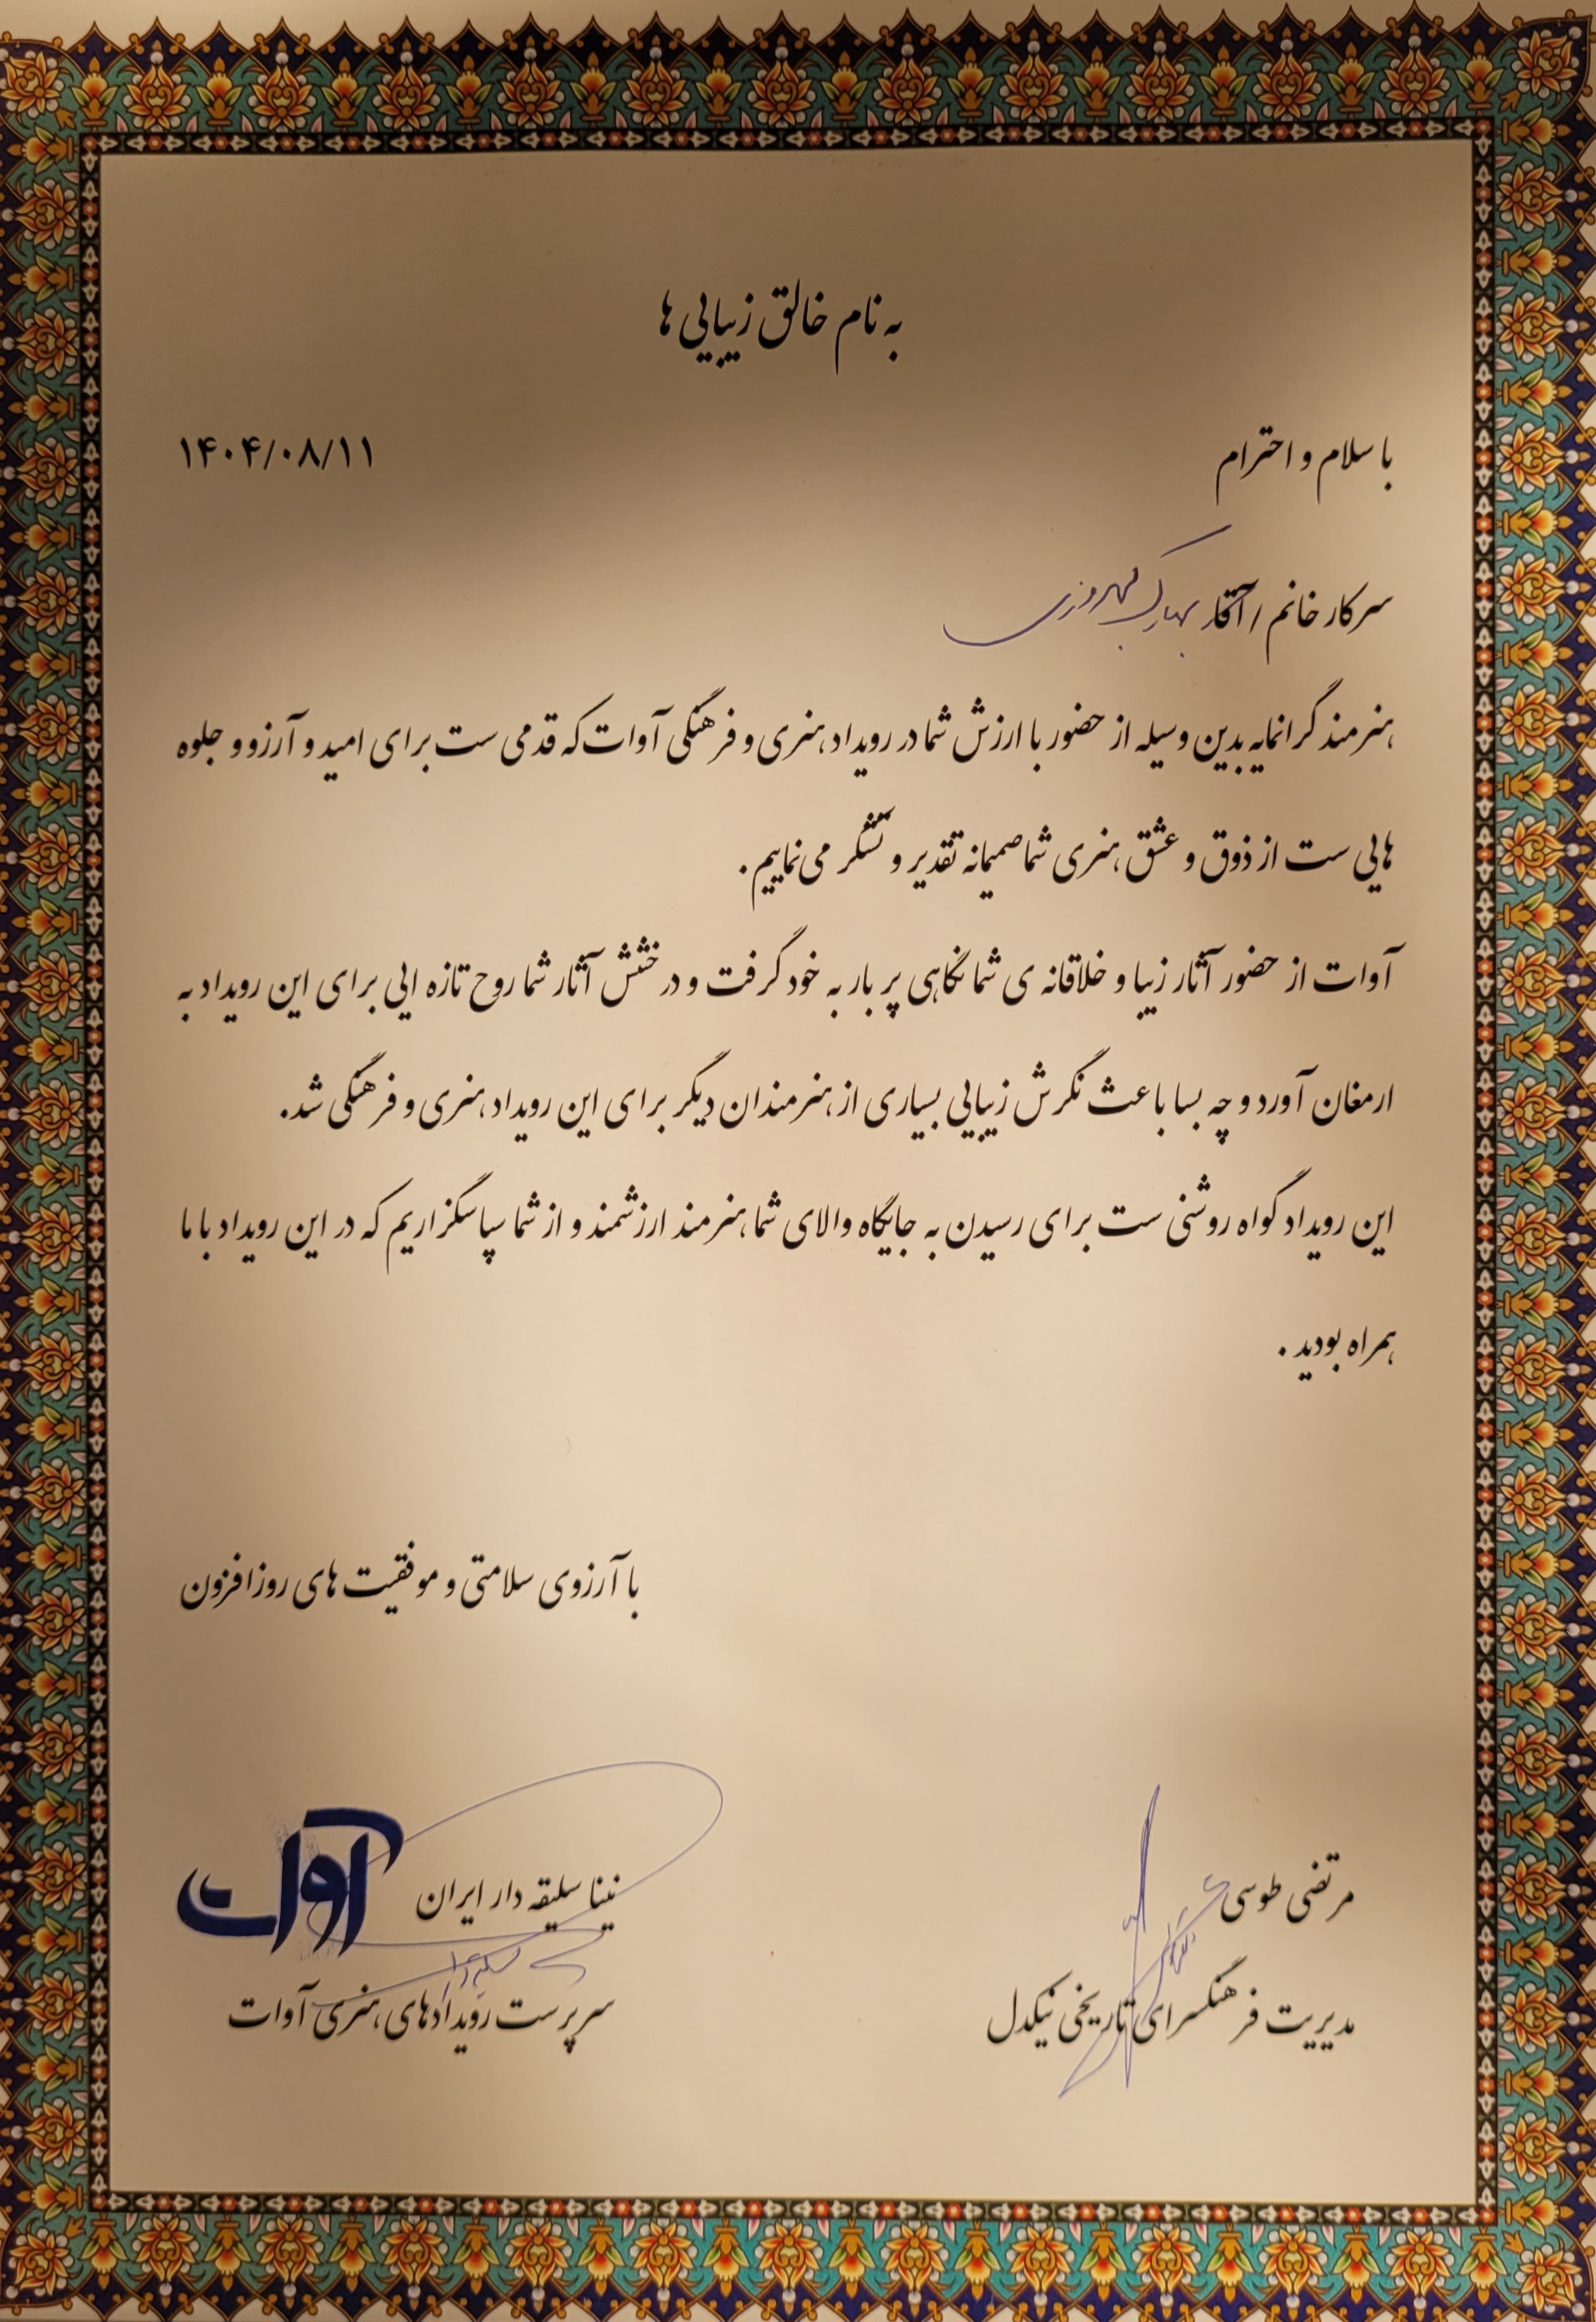 به نام خالق زیبایی ها
با سلام و احترام
۱۴۰۴/۰۸/۱۱
سرکار خانم / آقا
هنرمند گرانمایه بدین وسیله از حضور با ارزش شما در رویداد هنری و فرهنگی آوات که قدمی ست برای امید و آرزو و جلوه
هایی ست از ذوق و عشق هنری شما صمیمانه تقدیر و تشکر می نماییم.
آوات از حضور آثار زیبا و خلاقانه ی شما نگاهی پر بار به خود گرفت و درخشش آثار شما روح تازه ایی برای این رویداد به
ارمغان آورد و چه بسا باعث نگرش زیبایی بسیاری از هنرمندان دیگر برای این رویداد هنری و فرهنگی شد.
این رویداد گواه روشنی ست برای رسیدن به جایگاه والای شما هنرمند ارزشمند و از شما سپاسگزاریم که در این رویداد با ما
همراه بودید .
با آرزوی سلامتی و موفقیت های روزافزون
مرتضی طوسی
مدیریت فرهنگسرای تاریخی نیکدل
نینا سلیقه دار ایران
سرپرست رویدادهای هنری آوات
آوات